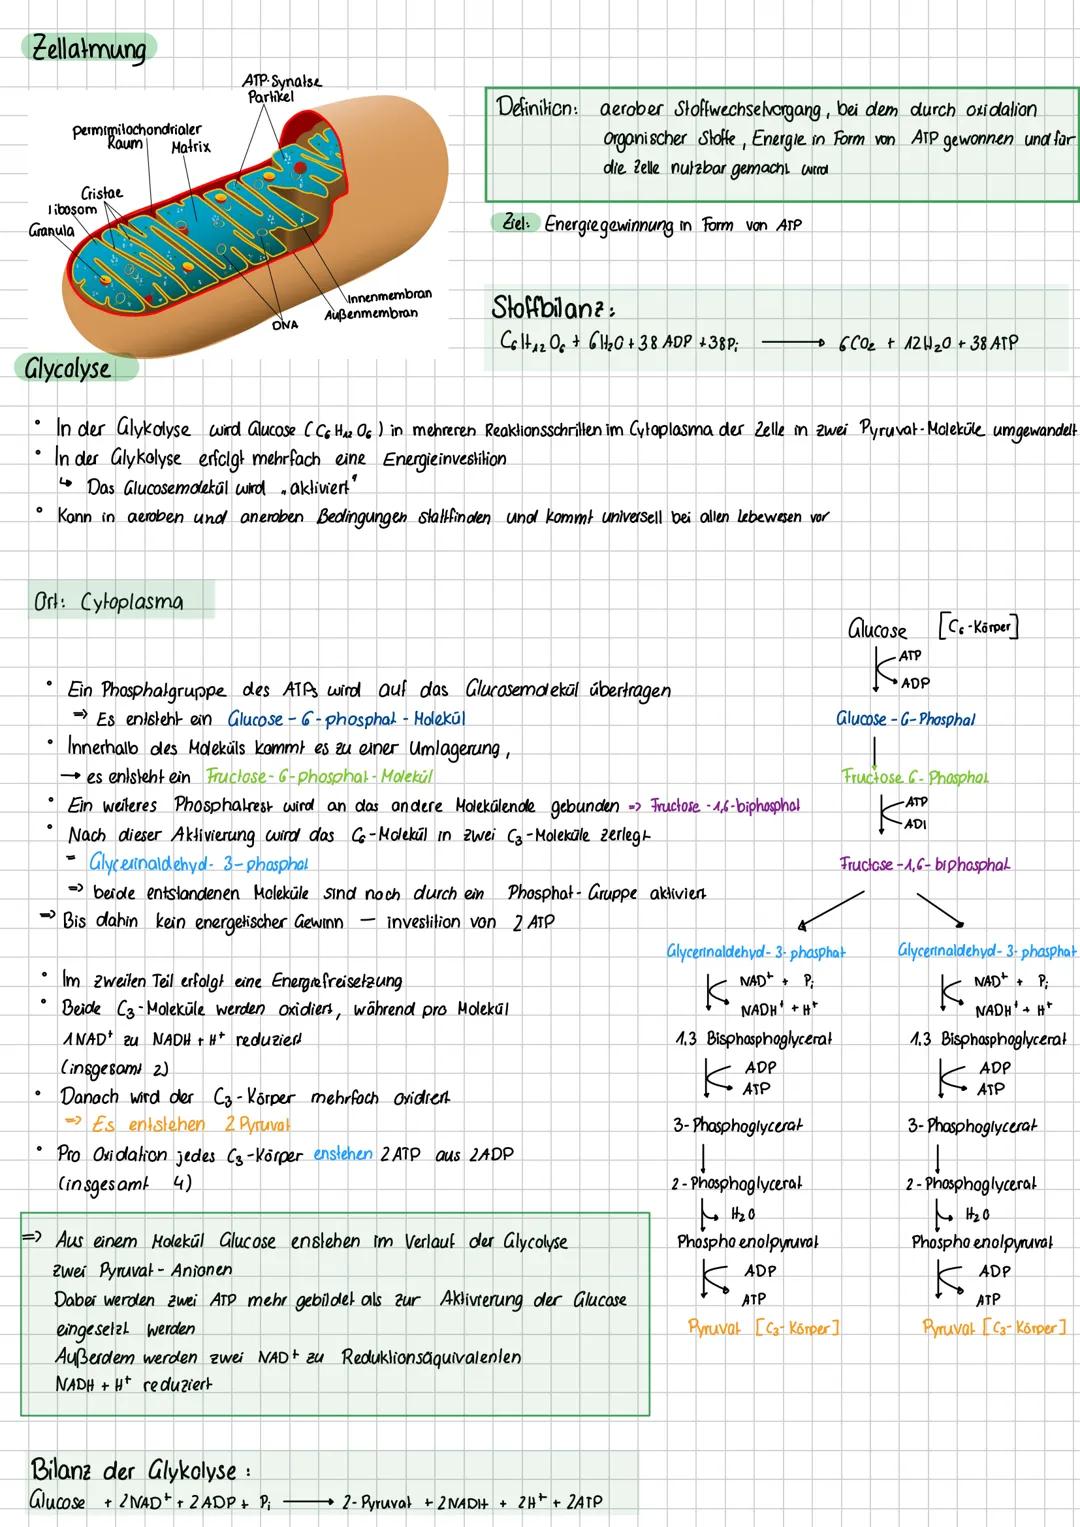 Zellatmung
ATP-Synatse
Partikel
permimitochondrialer
Raum
Matrix
Cristae
libosom
Granula
Innenmembran
Außenmembran
DNA
Definition: aerober Stoffwechselvorgang, bei dem durch oxidation
organischer Stoffe, Energie in Form von ATP gewonnen und für
die Zelle nutzbar gemacht wird
Ziel: Energiegewinnung in Form von ATP
Stoffbilanz:
C6H12O6 + 6H2O + 38 ADP + 38Pi → 6CO2 + 12H2O + 38 ATP
Glycolyse
• In der Glykolyse wird Glucose (C6H12O6) in mehreren Reaktionsschritten im Cytoplasma der Zelle in zwei Pyruvat-Moleküle umgewandelt
• In der Glykolyse erfolgt mehrfach eine Energieinvestition
↳ Das Glucosemolekül wird „aktiviert"
• Kann in aeroben und aneroben Bedingungen stattfinden und kommt universell bei allen Lebewesen vor
Ort: Cytoplasma
• Ein Phosphatgruppe des ATPs wird auf das Glucosemolekül übertragen
⇒ Es entsteht ein Glucose-6-phosphat-Molekül
• Innerhalb des Moleküls kommt es zu einer Umlagerung,
→ es entsteht ein Fructose-6-phosphat-Molekül
• Ein weiteres Phosphatrest wird an das andere Molekülende gebunden => Fructose-1,6-biphosphat
• Nach dieser Aktivierung wird das C6-Molekül in zwei C3-Moleküle zerlegt
= Glycerinaldehyd-3-phosphat
⇒ beide entstandenen Moleküle sind noch durch ein Phosphat-Gruppe aktiviert
⇒ Bis dahin kein energetischer Gewinn – investition von 2 ATP
• Im zweiten Teil erfolgt eine Energiefreisetzung
• Beide C3-Moleküle werden oxidiert, während pro Molekül
1 NAD+ zu NADH + H+ reduziert
(insgesamt 2)
• Danach wird der C3-Körper mehrfach oxidiert
⇒ Es entstehen 2 Pyruvat
• Pro Oxidation jedes C3-Körper enstehen 2 ATP aus 2 ADP
(insgesamt 4)
⇒ Aus einem Molekül Glucose enstehen im Verlauf der Glycolyse
zwei Pyruvat-Anionen
Dabei werden zwei ATP mehr gebildet als zur Aktivierung der Glucose
eingesetzt werden
Außerdem werden zwei NAD+ zu Reduktionsäquivalenten
NADH + H+ reduziert
Bilanz der Glykolyse:
Glucose + 2NAD+ + 2 ADP + Pi → 2-Pyruvat + 2NADH + 2H+ + 2ATP
Glucose [C6-Körper]
ATP
ADP
Glucose-6-Phosphat
Fructose 6-Phosphat
ATP
ADI
Fructose-1,6-biphosphat
Glycerinaldehyd-3-phosphat Glycerinaldehyd-3-phosphat
NAD+ + Pi NAD+ + Pi
NADH+ + H+ NADH+ + H+
1,3 Bisphosphoglycerat 1,3 Bisphosphoglycerat
ADP ADP
ATP ATP
3-Phosphoglycerat 3-Phosphoglycerat
2-Phosphoglycerat 2-Phosphoglycerat
H2O H2O
Phosphoenolpyruvat Phosphoenolpyruvat
ADP ADP
ATP ATP
Pyruvat [C3-Körper] Pyruvat [C3-Körper]